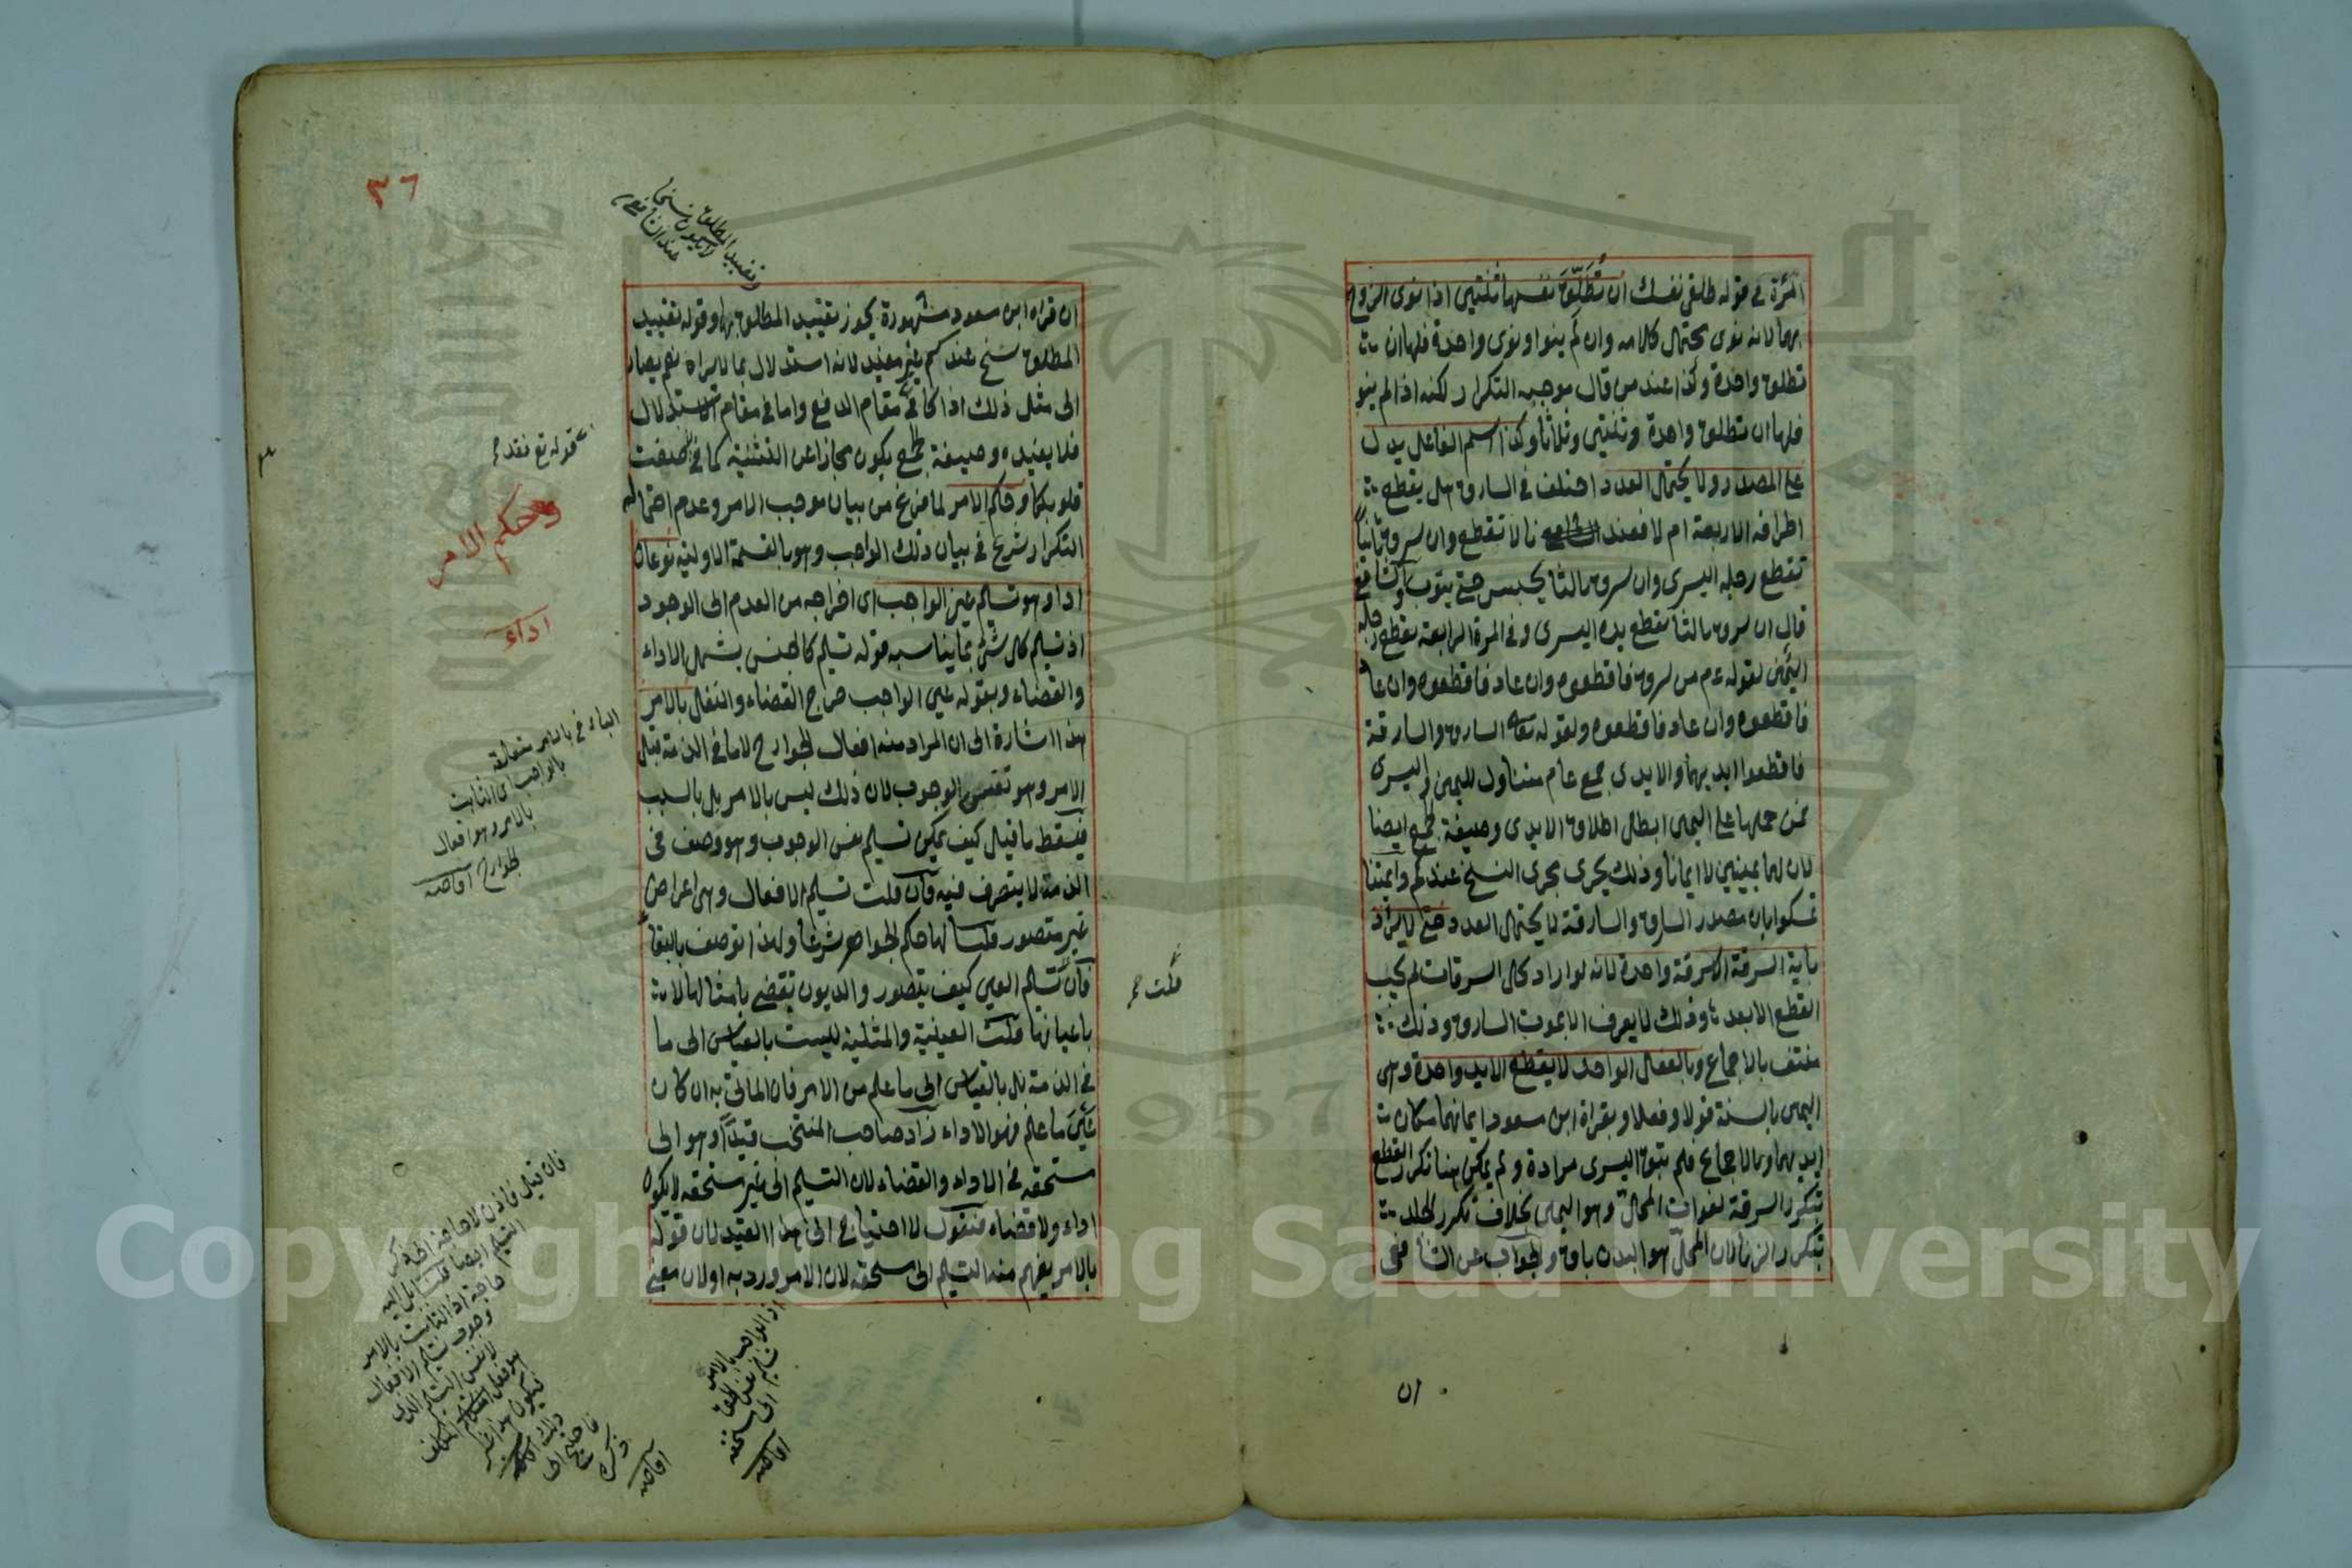 المرأة في قوله طلقي نفسك ان تُطَلِّقَ نفسها ثنتين اذا نوى الزوج
بهما لانه نوى محتمل كلامه وان لم ينو او نوى واحدة فلها ان
تطلق واحدة وكذا عند من قال موجبه التكرار لكنه اذا لم ينو
فلها ان تطلق واحدة وثنتين وثلاثا وكذا اسم الفاعل يدل
على المصدر ولا يحتمل العدد اختلف في السارق هل يقطع
اطرافه الاربعة ام لا فعندنا لا تقطع وان سرق ثانيا
تقطع رجله اليسرى وان سرق ثالثا يحبس حتى يتوب والشافعي
قال ان سرق ثالثا تقطع يده اليسرى وفي المرة الرابعة تقطع رجله
اليمنى لقوله عم من سرق فاقطعوه وان عاد فاقطعوه وان عاد
فاقطعوه وان عاد فاقطعوه ولقوله تعا السارق والسارقة
فاقطعوا ايديهما والايدى جمع عام متناول لليمين واليسرى
فمن حملها على اليمين ابطل اطلاق الايدى وصيغة الجمع ايضا
لان لهما يمينين لا ايمانا وذلك يجرى مجرى النسخ عندكم وايمتنا
تمسكوا بان مصدر السارق والسارقة لا يحتمل العدد حتى لا يراد
باية السرقة الا سرقة واحدة لانه لو اراد كل السرقات لم يجب
القطع الا بعد وذلك لا يعرف الا بموت السارق وذلك
منتف بالاجماع وبالفعل الواحد لا يقطع الا يد واحدة وهى
اليمين بالسنة قولا وفعلا وبقراة ابن مسعود ايمانهما مكان
ايديهما وبالاجماع فلم تبق اليسرى مرادة ولم يمكن هنا تكرر القطع
بتكرر السرقة لفوات المحل وهو اليمين بخلاف تكرر الجلد
بتكرر الزنا لان المحل هو البدن باق والجواب عن الشافعى
ان
وتقييد المطلق
لا يكون نسخا
عند الشافعى
٣٦
ان قراه ابن مسعود مشهورة يجوز تقييد المطلق بها وقوله تقييد
المطلق نسخ عندكم غير مفيد لانه استدلال بما لا يراه نعم يصار
الى مثل ذلك اذا كا في مقام الدفع واما في مقام الاستدلال
فلا يفيده وصيغة الجمع يكون مجازا عن التثنية كما في صغت
قلوبكما وحكم الامر لما فرغ من بيان موجب الامر وعدم احتماله
التكرار شرع في بيان ذلك الواجب وهو بالقسمة الاولية نوعان
اداء وهو تسليم عين الواجب اى اخراجه من العدم الى الوجود
اذ تسليم كل شئ بما يناسبه قوله تسليم كالجنس يشمل الاداء
والقضاء وبقوله عين الواجب خرج القضاء والنفل بالامر
هذا اشارة الى ان المراد منه افعال الجوارح لا ما في الذمة قبل
الامر وهو نفس الوجوب لان ذلك ليس بالامر بل بالسبب
فيسقط ما قيل كيف يمكن تسليم نفس الوجوب وهو وصف في
الذمة لا يتصرف فيه فان قلت تسليم الافعال وهى اعراض
غير متصور قلنا لها حكم الجواهر شرعا ولهذا توصف بالبقا
فان تسليم العين كيف يتصور والديون تقضى بامثالها لا
باعيانها قلت العينية والمثلية ليست بالقياس الى ما
في الذمة بل بالقياس الى ما علم من الامر فان الماتى به ان كان
عَيْنَ ما علم فهو الاداء زاد صاحب المنتخب قيدًا وهو الى
مستحقه في الاداء والقضاء لان التسليم الى غير مستحقه لا يكون
اداء ولا قضاء فنقول لا احتياج الى هذا القيد لان قوله
بالامر يفهم منه التسليم الى مستحقه لان الامر ورد به او لان معنى
قوله تع فقد
وحكم الامر
اداء
الباء في بالامر متعلقة
بالواجب اى الثابت
بالامر وهو افعال
الجوارح
قلت
فان قيل فاذن لا حاجة الى ذكر
التسليم ايضا
حاجة اذ الثابت بالامر
وجوب تسليم الافعال
لا نفس التسليم الذى
هو فعل المكلف
اذ الواجب بالامر
تسليم نفس الحق
الى مستحقه
Copyright © King Saud University
957